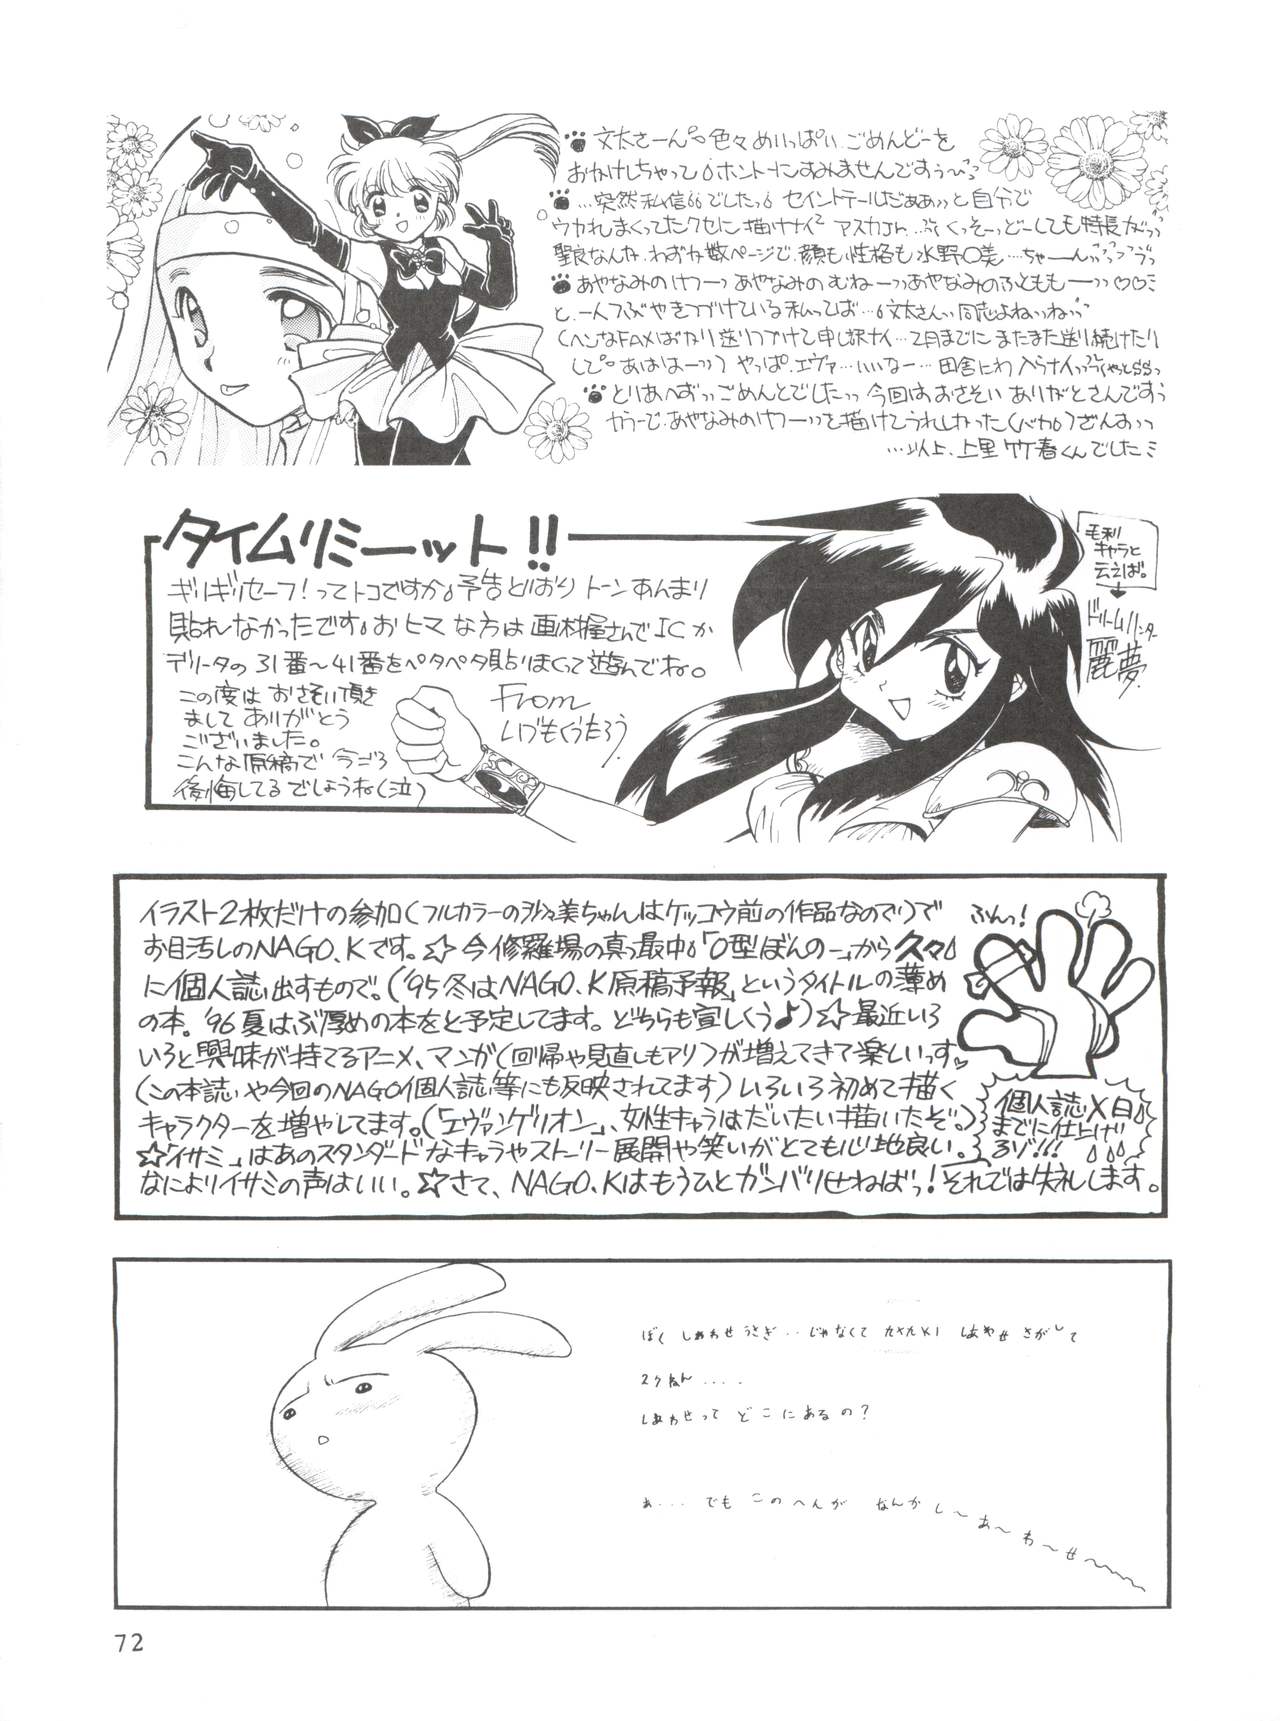 文太さーん 色々めいっぱい.ごめんどーを
おかけしちゃって ホントーにすみませんですぅ〜
…突然私信でしたっ セイントテールだぁぁっと自分で
ウカれまくってたクセに描けナイ アスカJr. …ぷくっそーっどーしても特長がっっ
聖良なんか.わずか数ページで.顔も性格も水野○美…ちゃーんっっ
あやなみのけつーっ あやなみのむねーっっ あやなみのふともも ーっっ♡♡
と.一人つぶやきつづけている私ってば… 文太さんっ同志よねっねっっ
(ヘンなFAXばかり送りつけて申し訳ナイ…2月までにまたまた送り続けたり
して あははーっっ) やっぱ.エヴァ…いいなー…田舎にわ入らナイっっ
とりあへずっっごめんとでしたっっ 今回はおさそい ありがとさんですぅ
あやなみのけつーっっを描けてうれしかった(バカ)
…以上.上里竹春くんでした
タイムリミーット!!
ギリギリセーフ!ってトコですか。予告どおり トーンあんまり
貼れなかったです。おヒマな方は画材屋さんでICか
デリータの31番〜41番をペタペタ貼りまくって遊んでね。
この度は おさそい頂き
まして ありがとう
ございました。
こんな原稿で 今ごろ
後悔してるでしょうね(泣)
From
いづもくうたろう
毛利
キャラと
云えば。
ドリームハンター
麗夢
イラスト2枚だけの参加(フルカラーの美ちゃんはケッコウ前の作品なので!)で
お目汚しのNAGO.Kです。☆今修羅場の真っ最中。「O型ぼんのー」から久々
に個人誌出すもので。('95冬は「NAGO.K原稿予報」というタイトルの薄め
の本。'96夏はぶ厚めの本をと予定してます。どちらも宜しくぅ♪)☆最近いろ
いろと興味が持てるアニメ、マンガ(回帰や見直しもアリ)が増えてきて楽しいっす♥
(この本誌や今回のNAGO個人誌等にも反映されてます)いろいろ初めて描く
キャラクターを増やしてます。(「エヴァンゲリオン」、女性キャラはだいたい描いたぞ。)
☆「イサミ」はあのスタンダードなキャラやストーリー展開や笑いがとても心地良い。
なによりイサミの声はいい。☆さて、NAGO.Kはもうひとガンバリせねばっ!それでは失礼します。
ふんっ!
個人誌X日
までに仕上げ
るゾ!!!
ぼく しあわせうさぎ・・じゃなくて KAKKI しあわせ さがして
27ねん・・・・
しあわせって どこにあるの?
あ・・・ でも このへんが なんか し〜あ〜わ〜せ〜
72